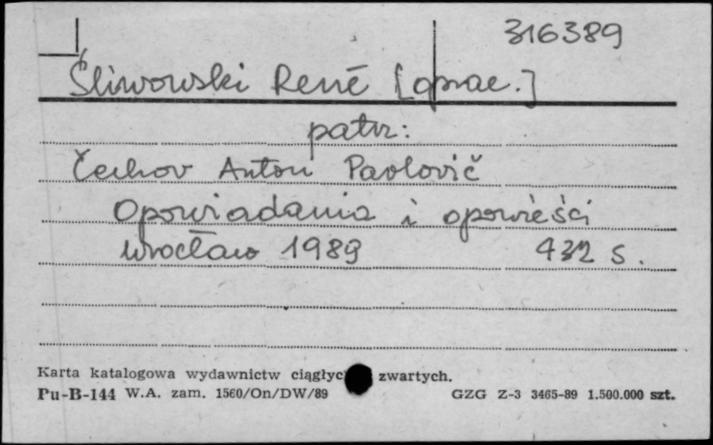 316389
Śliwowski René [oprac.]
patrz:
Čechov Anton Pavlovič
Opowiadania i opowieści
Wrocław 1989 432 s.
Karta katalogowa wydawnictw ciągłyc zwartych.
Pu-B-144 W.A. zam. 1560/On/DW/89 GZG Z-3 3465-89 1.500.000 szt.